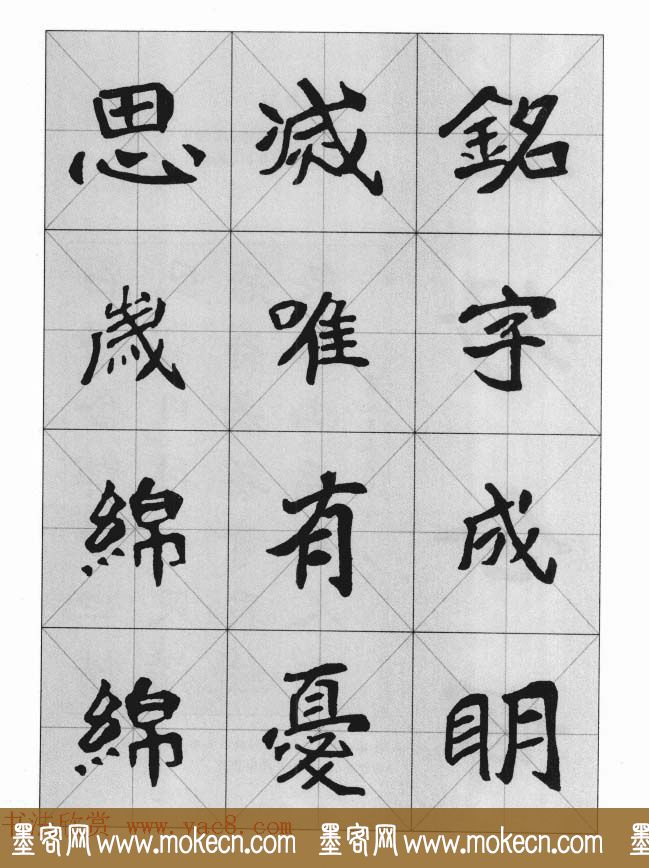 銘字成明
滅唯有憂
思歲綿綿
书法欣赏 www.yac8.com
墨客网 www.mokecn.com 墨客网 www.mokecn.com